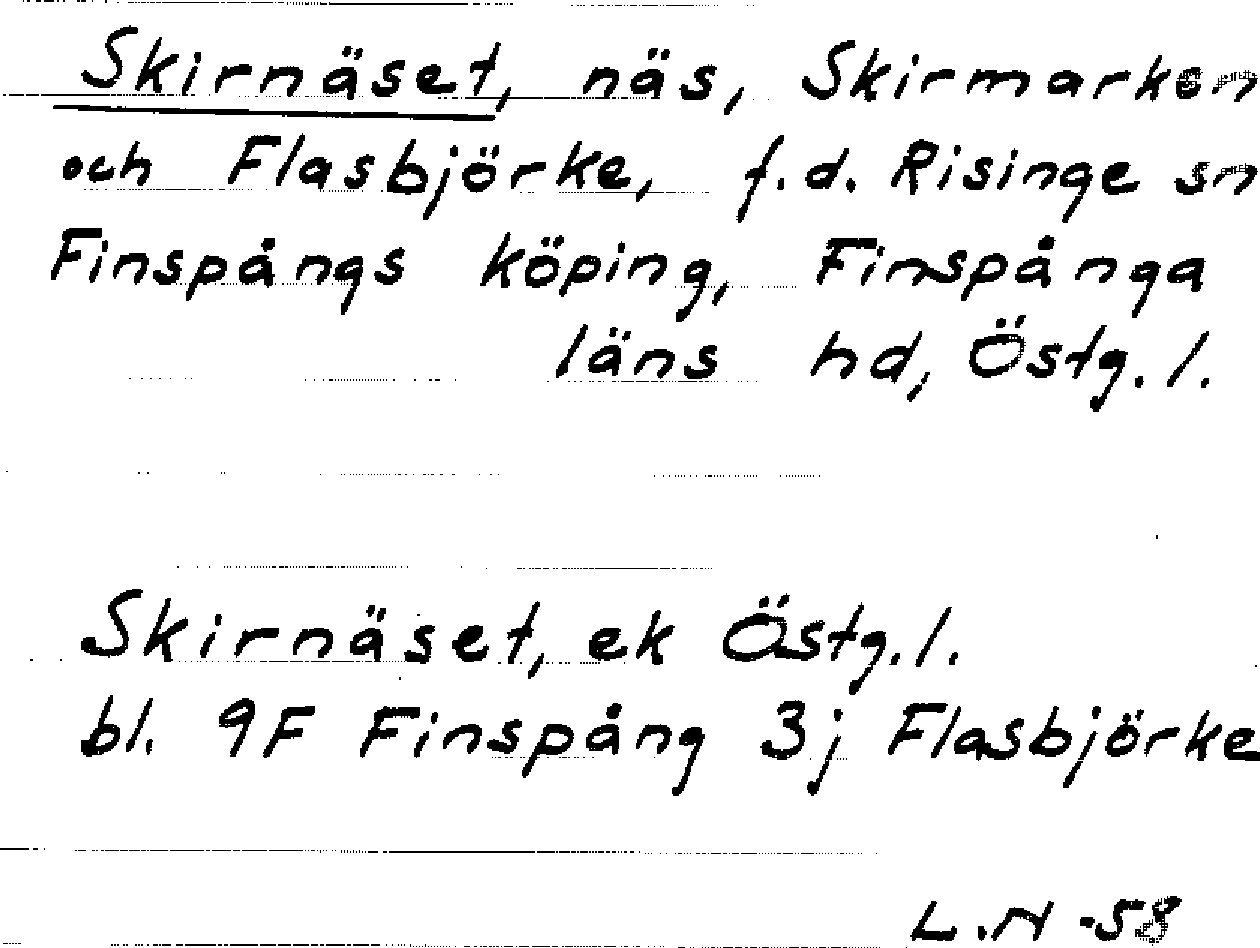 Skirnäset, näs, Skirmarken
och Flasbjörke, f.d. Risinge sn
Finspångs köping, Finspånga
läns hd, Östg. l.
Skirnäset, ek Östg. l.
bl. 9F Finspång 3j Flasbjörke
L.N -58